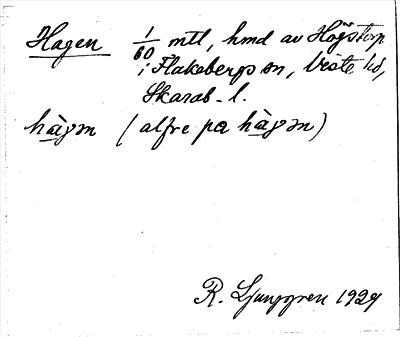 Hagen 1/60 mtl, hmd av Högstorp
i Flakebergs sn, Viste hd,
Skarab. l.
hàgɘn (alfre pa hàgɘn)
R. Ljunggren 1927